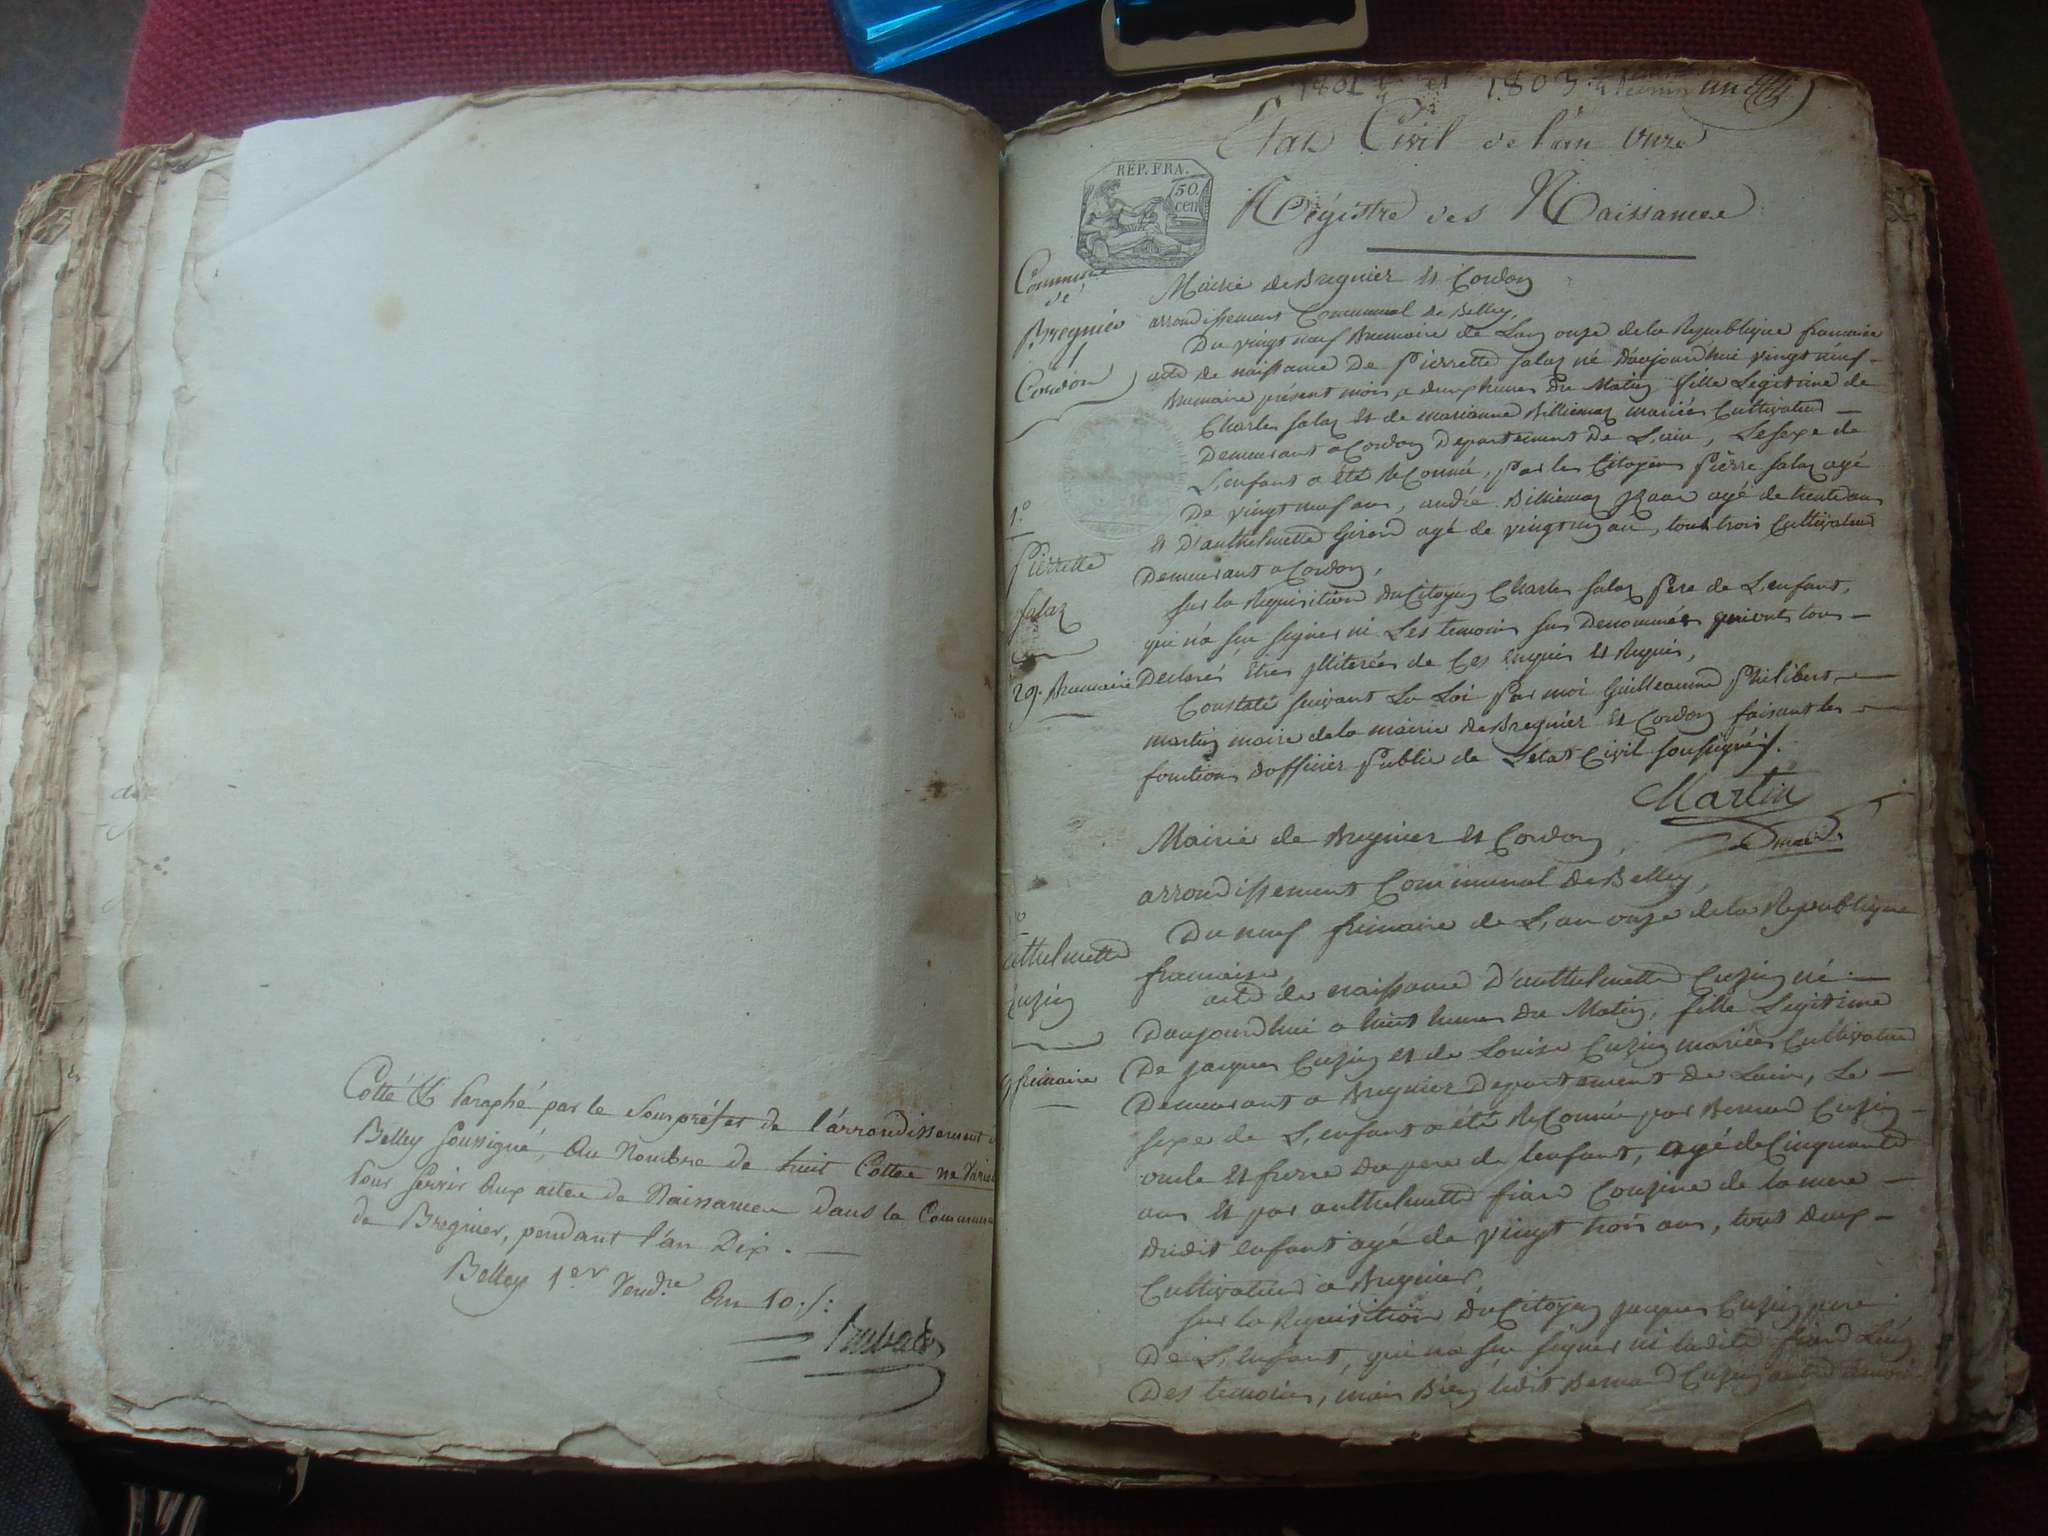 Cotté & Paraphé par le Souspréfet de l'arrondissement
Belley soussigné, Au Nombre de huit Cottes ne Varie
Pour servir aux actes de Naissance dans la Commune
de Bregnier, pendant l'an Dix. —
Belley 1er Vend.re An 10./.
Etat Civil de l'an Onze
RÉP. FRA.
50.
cen
Régistre des Naissance
Commune
de
Bregnier
&
Cordon
Mairie de Bregnier et Cordon
arrondissement Communal de Belley,
Du vingt neuf Brumaire de Lan onze de la Republique francaise
acte de naissance De Pierrette Salaz né D'aujourd'hui vingt neuf -
Brumaire présent mois a deux heures Du Matin fille Legitime de
Charles Salaz et de marianne Billiemaz mariés Cultivateur —
Demeurant a Cordon Departement De L'ain, Le sexe de
L'enfant a été Reconnu, par les Citoyens Pierre Salaz agé
De vingt neuf ans, andré Billiemaz agé de trente ans
et D'anthelmette Girord agé de vingt cinq ans, tous trois Cultivateur
Demeurant a Cordon,
1.º
Pierrette
Salaz
29. Brumaire
Sur la Requisition du Citoyen Charles Salaz Pere de L'enfant,
qui n'a su signer ni Les temoins sus Denommés qui ont tous —
Declarés Etres Illiterées de Ces enquis et Requis,
Constaté suivant La Loi Par moi Guilleaume Philibert —
martin maire de la mairie de Bregnier et Cordon faisant les —
fonctions D'officier Public de L'etat Civil soussignés.
Martin
maire
Mairie de Bregnier et Cordon,
arrondissement Communal de Belley,
Du neuf frimaire de L'an onze de la Republique
francaise
anthelmette
Cuzin
9 frimaire
acte de naissance D'anthelmette Cuzin né —
D'aujourd'hui a huit heures Du Matin, fille Legitime
De jacques Cuzin et de Louise Cuzin mariés Cultivateur
Demeurant a Bregnier Departement de Lain, Le —
sexe de L'enfant a été Reconnu par Bernard Cuzin -
oncle et frere du pere de l'enfant, agé de Cinquante
ans et par anthelmette fiard Couzine de la mere —
dudit enfant agé de vingt trois ans, tous deux —
Cultivateur a Bregnier,
sur la Requisition du Citoyen jacques Cuzin pere
De L'enfant, qui n'a su signer ni ladite fiard L'un
Des temoins, mais Bien ledit Bernard Cuzin autre temoin